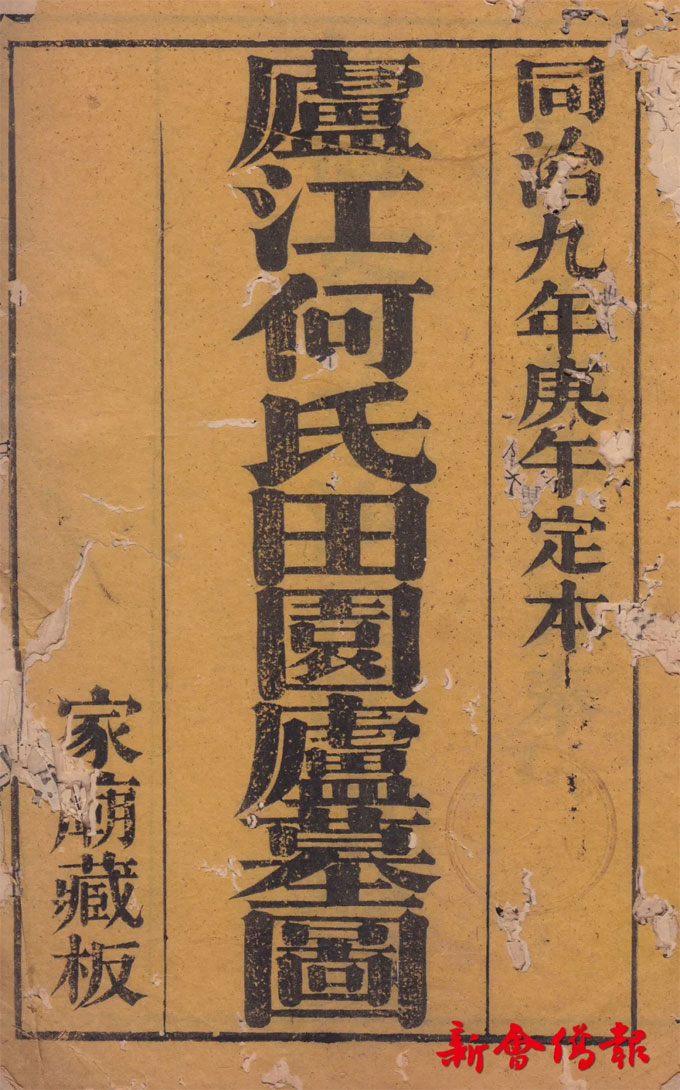 同治九年庚午定本
廬江何氏田園廬墓圖
家廟藏板
新會僑報